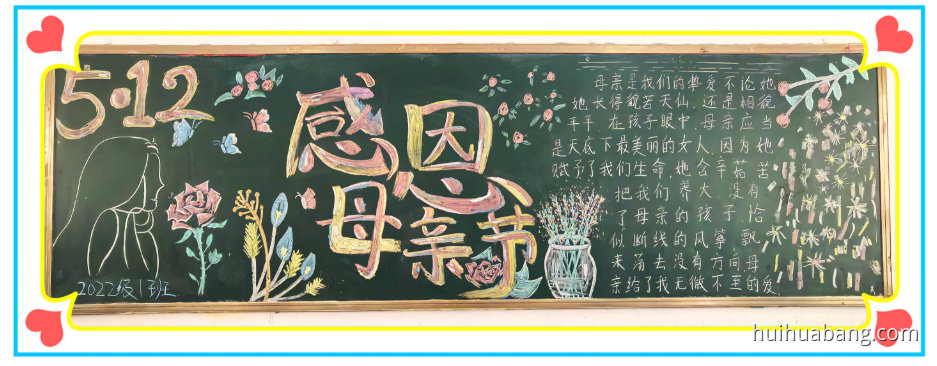 5·12
感恩
母亲节
2022级1班
母亲是我们的挚爱不论她
她长得貌若天仙,还是相貌
平平,在孩子眼中,母亲应当
是天底下最美丽的女人,因为她
赋予了我们生命,她含辛茹苦
把我们养大,没有
了母亲的孩子,恰
似断线的风筝,飘
来荡去没有方向,母
亲给了我无微不至的爱
huihuabang.com